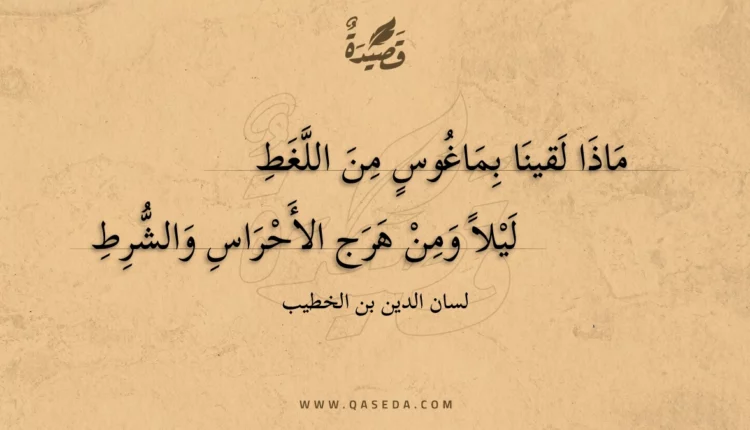 قَصِيدَةٌ
مَاذَا لَقينَا بِمَاغُوسٍ مِنَ اللَّغَطِ
لَيْلاً وَمِنْ هَرَج الأَحْرَاسِ وَالشُّرِطِ
لسان الدين بن الخطيب
WWW.QASEDA.COM